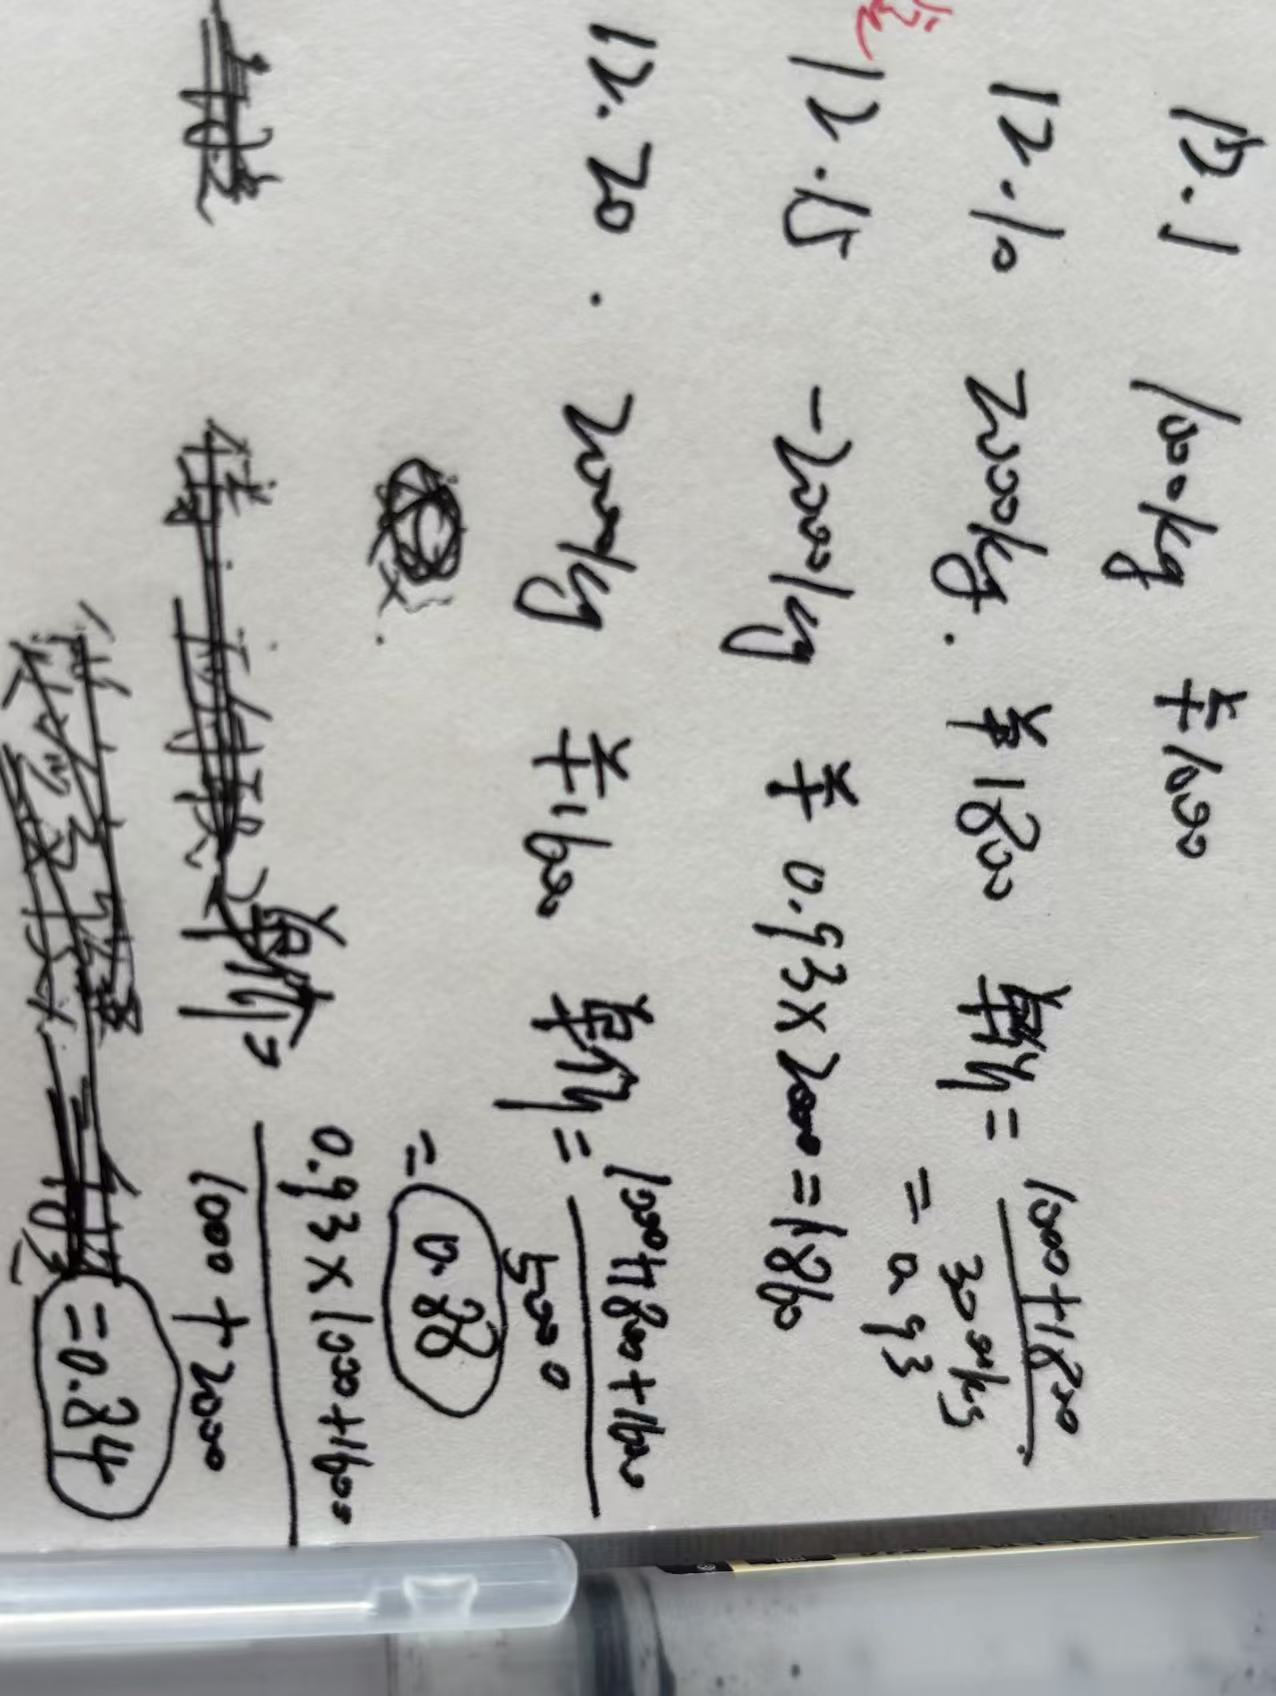 12.1 1000kg ¥1000
12.10 2000kg. ¥1800 单价= 1000+1800
3000kg
=0.93
12.15 -2000kg ¥0.93×2000=1860
12.20. 2000kg ¥1600 单价= 1000+1800+1600
5000
=0.88
单价= 0.93×1000+1600
1000+2000
=0.84